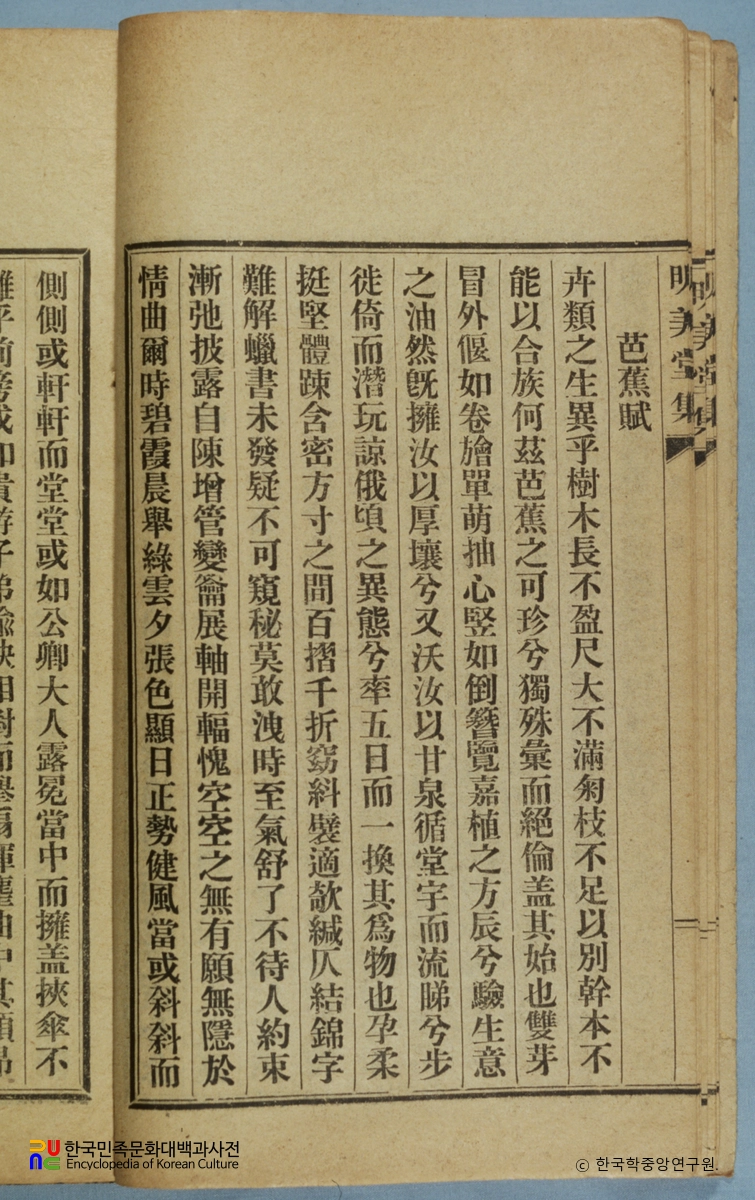 明美堂集
芭蕉賦
卉類之生異乎樹木長不盈尺大不滿匊枝不足以別幹本不
能以合族何茲芭蕉之可珍兮獨殊彙而絕倫盖其始也雙芽
冒外偃如卷旝單萌抽心竪如倒簪覽嘉植之方辰兮驗生意
之油然旣擁汝以厚壤兮又沃汝以甘泉循堂宇而流睇兮步
徙倚而潛玩諒俄頃之異態兮率五日而一換其爲物也孕柔
挺堅體踈含密方寸之間百摺千折窈糾襞適欹緘仄結錦字
難解蠟書未發疑不可窺秘莫敢洩時至氣舒了不待人約束
漸弛披露自陳增管變籥展軸開輻愧空空之無有願無隱於
情曲爾時碧霞晨擧綠雲夕張色顯日正勢健風當或斜斜而
側側或軒軒而堂堂或如公卿大人露冕當中而擁盖挾傘不
한국민족문화대백과사전
Encyclopedia of Korean Culture
ⓒ 한국학중앙연구원